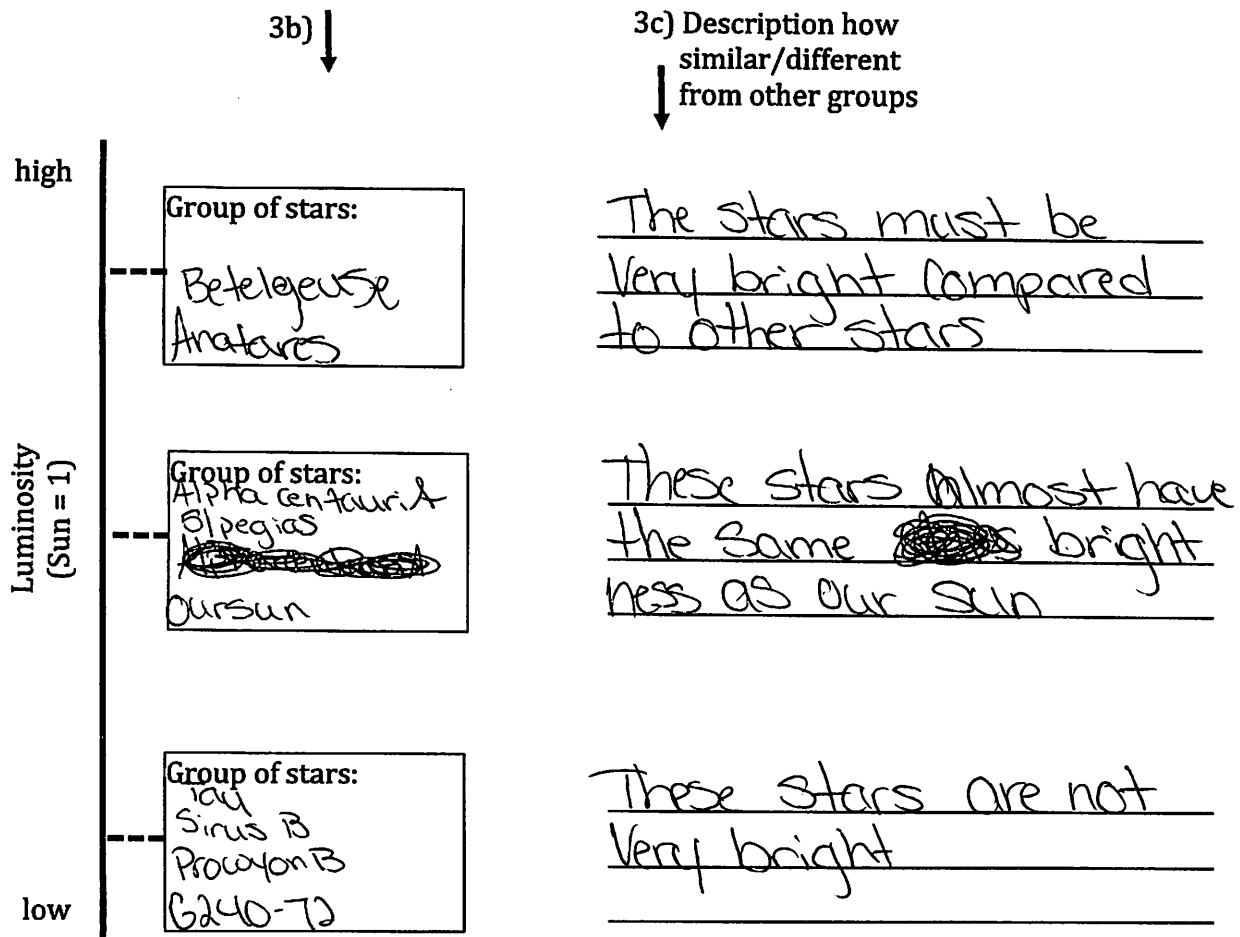 3b)
3c) Description how
similar/different
from other groups
high
Group of stars:
Betelgeuse
Anatares
The stars must be
Very bright Compared
to other stars
Luminosity
(Sun = 1)
Group of stars:
Alpha centauri A
51pegias
oursun
These stars Almost have
the same bright
ness as our sun
Group of stars:
Sirus B
Procyon B
G240-72
These stars are not
Very bright
low